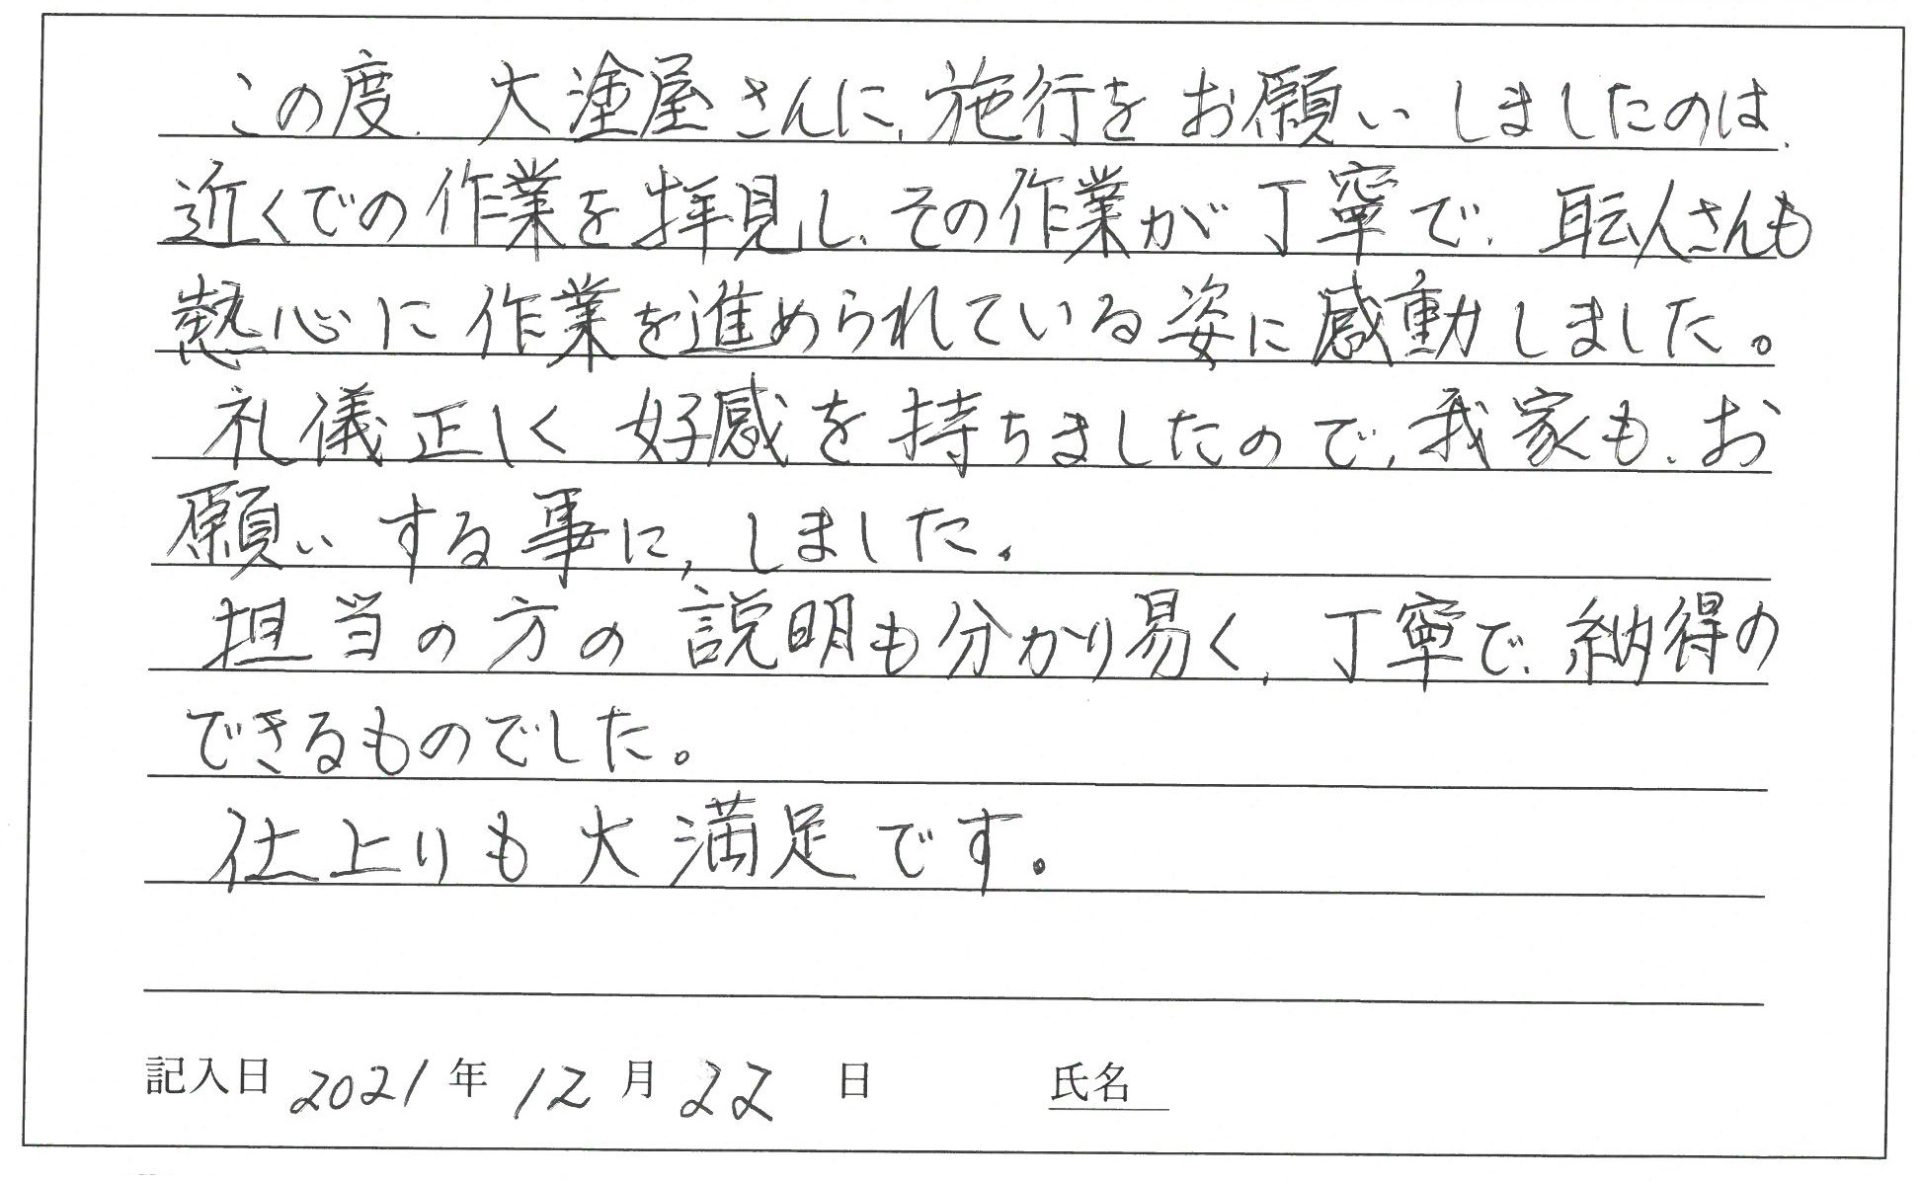 この度、大塗屋さんに、施行をお願いしましたのは、
近くでの作業を拝見し、その作業が丁寧で、職人さんも
熱心に作業を進められている姿に感動しました。
礼儀正しく好感を持ちましたので、我家も、お
願いする事に、しました。
担当の方の説明も分かり易く、丁寧で、納得の
できるものでした。
仕上りも大満足です。
記入日 2021年 12月 22日 氏名